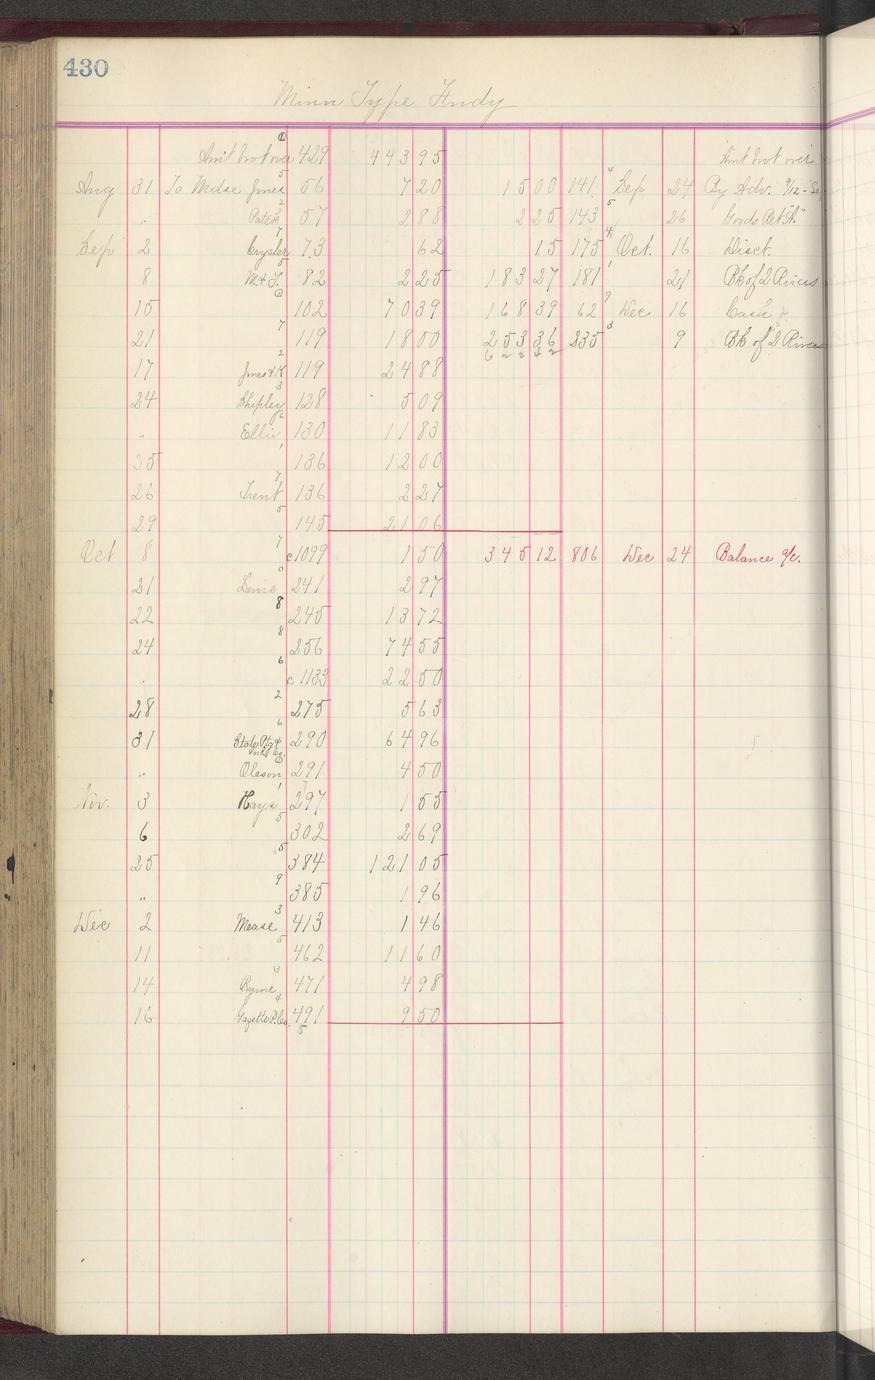 430
Minn Type Fndy
Am't brot over 429 443 95 Amt brot over
Aug 31 To Mdse Jones 56 7 20 15 00 141 Sep 24 By Adv. 9/12
" Pates 57 2 88 2 25 143 26 Goods Ret'd
Sep 2 Crysler 73 62 15 175 Oct. 16 Disct.
8 M. & J. 82 2 25 183 27 181 21 Bk of 2 Rivers
15 102 70 39 168 39 62 Dec 16 Cash
21 119 18 00 253 36 235 9 Bk of 2 Rivers
17 Jones & K 119 24 88
24 Shipley 128 5 09
" Ellis 130 11 83
25 136 12 00
26 Trent 136 2 27
29 145 21 06
Oct 8 c1099 1 50 345 12 806 Dec 24 Balance a/c.
21 Lewis 241 2 97
22 245 13 72
24 256 74 55
" c1133 22 50
28 275 5 63
31 State Ptg & 290 64 96
" Oleson 291 4 50
Nov. 3 Hays 297 1 55
6 302 2 69
25 384 121 05
" 385 1 96
Dec 2 Mease 413 1 46
11 462 11 60
14 Byrne 471 4 98
16 Gazette P. Co. 491 9 50